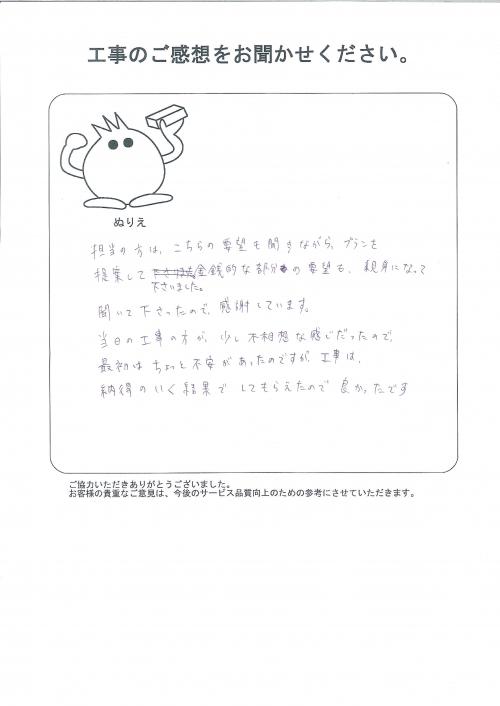 工事のご感想をお聞かせください。
ぬりえ
担当の方は、こちらの要望も聞きながら、プランを
提案して下さいました。金銭的な部分の要望も、親身になって
聞いて下さったので、感謝しています。
当日の工事の方が、少し不相想な感じだったので、
最初はちょっと不安があったのですが、工事は、
納得のいく結果でしてもらえたので良かったです
ご協力いただきありがとうございました。
お客様の貴重なご意見は、今後のサービス品質向上のための参考にさせていただきます。